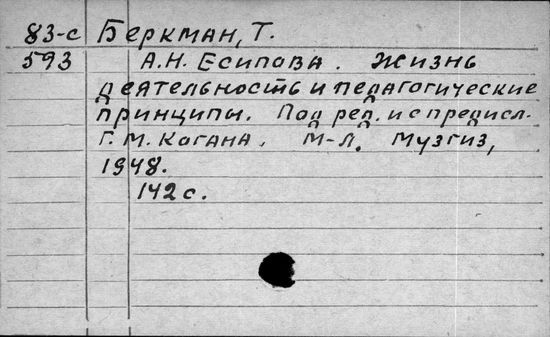 83-с Беркман, Т.
593 А.Н. Есипова. Жизнь
деятельность и педагогические
принципы. Под ред. и с предисл.
Г. М. Когана. М-Л. Музгиз,
1948.
142 с.